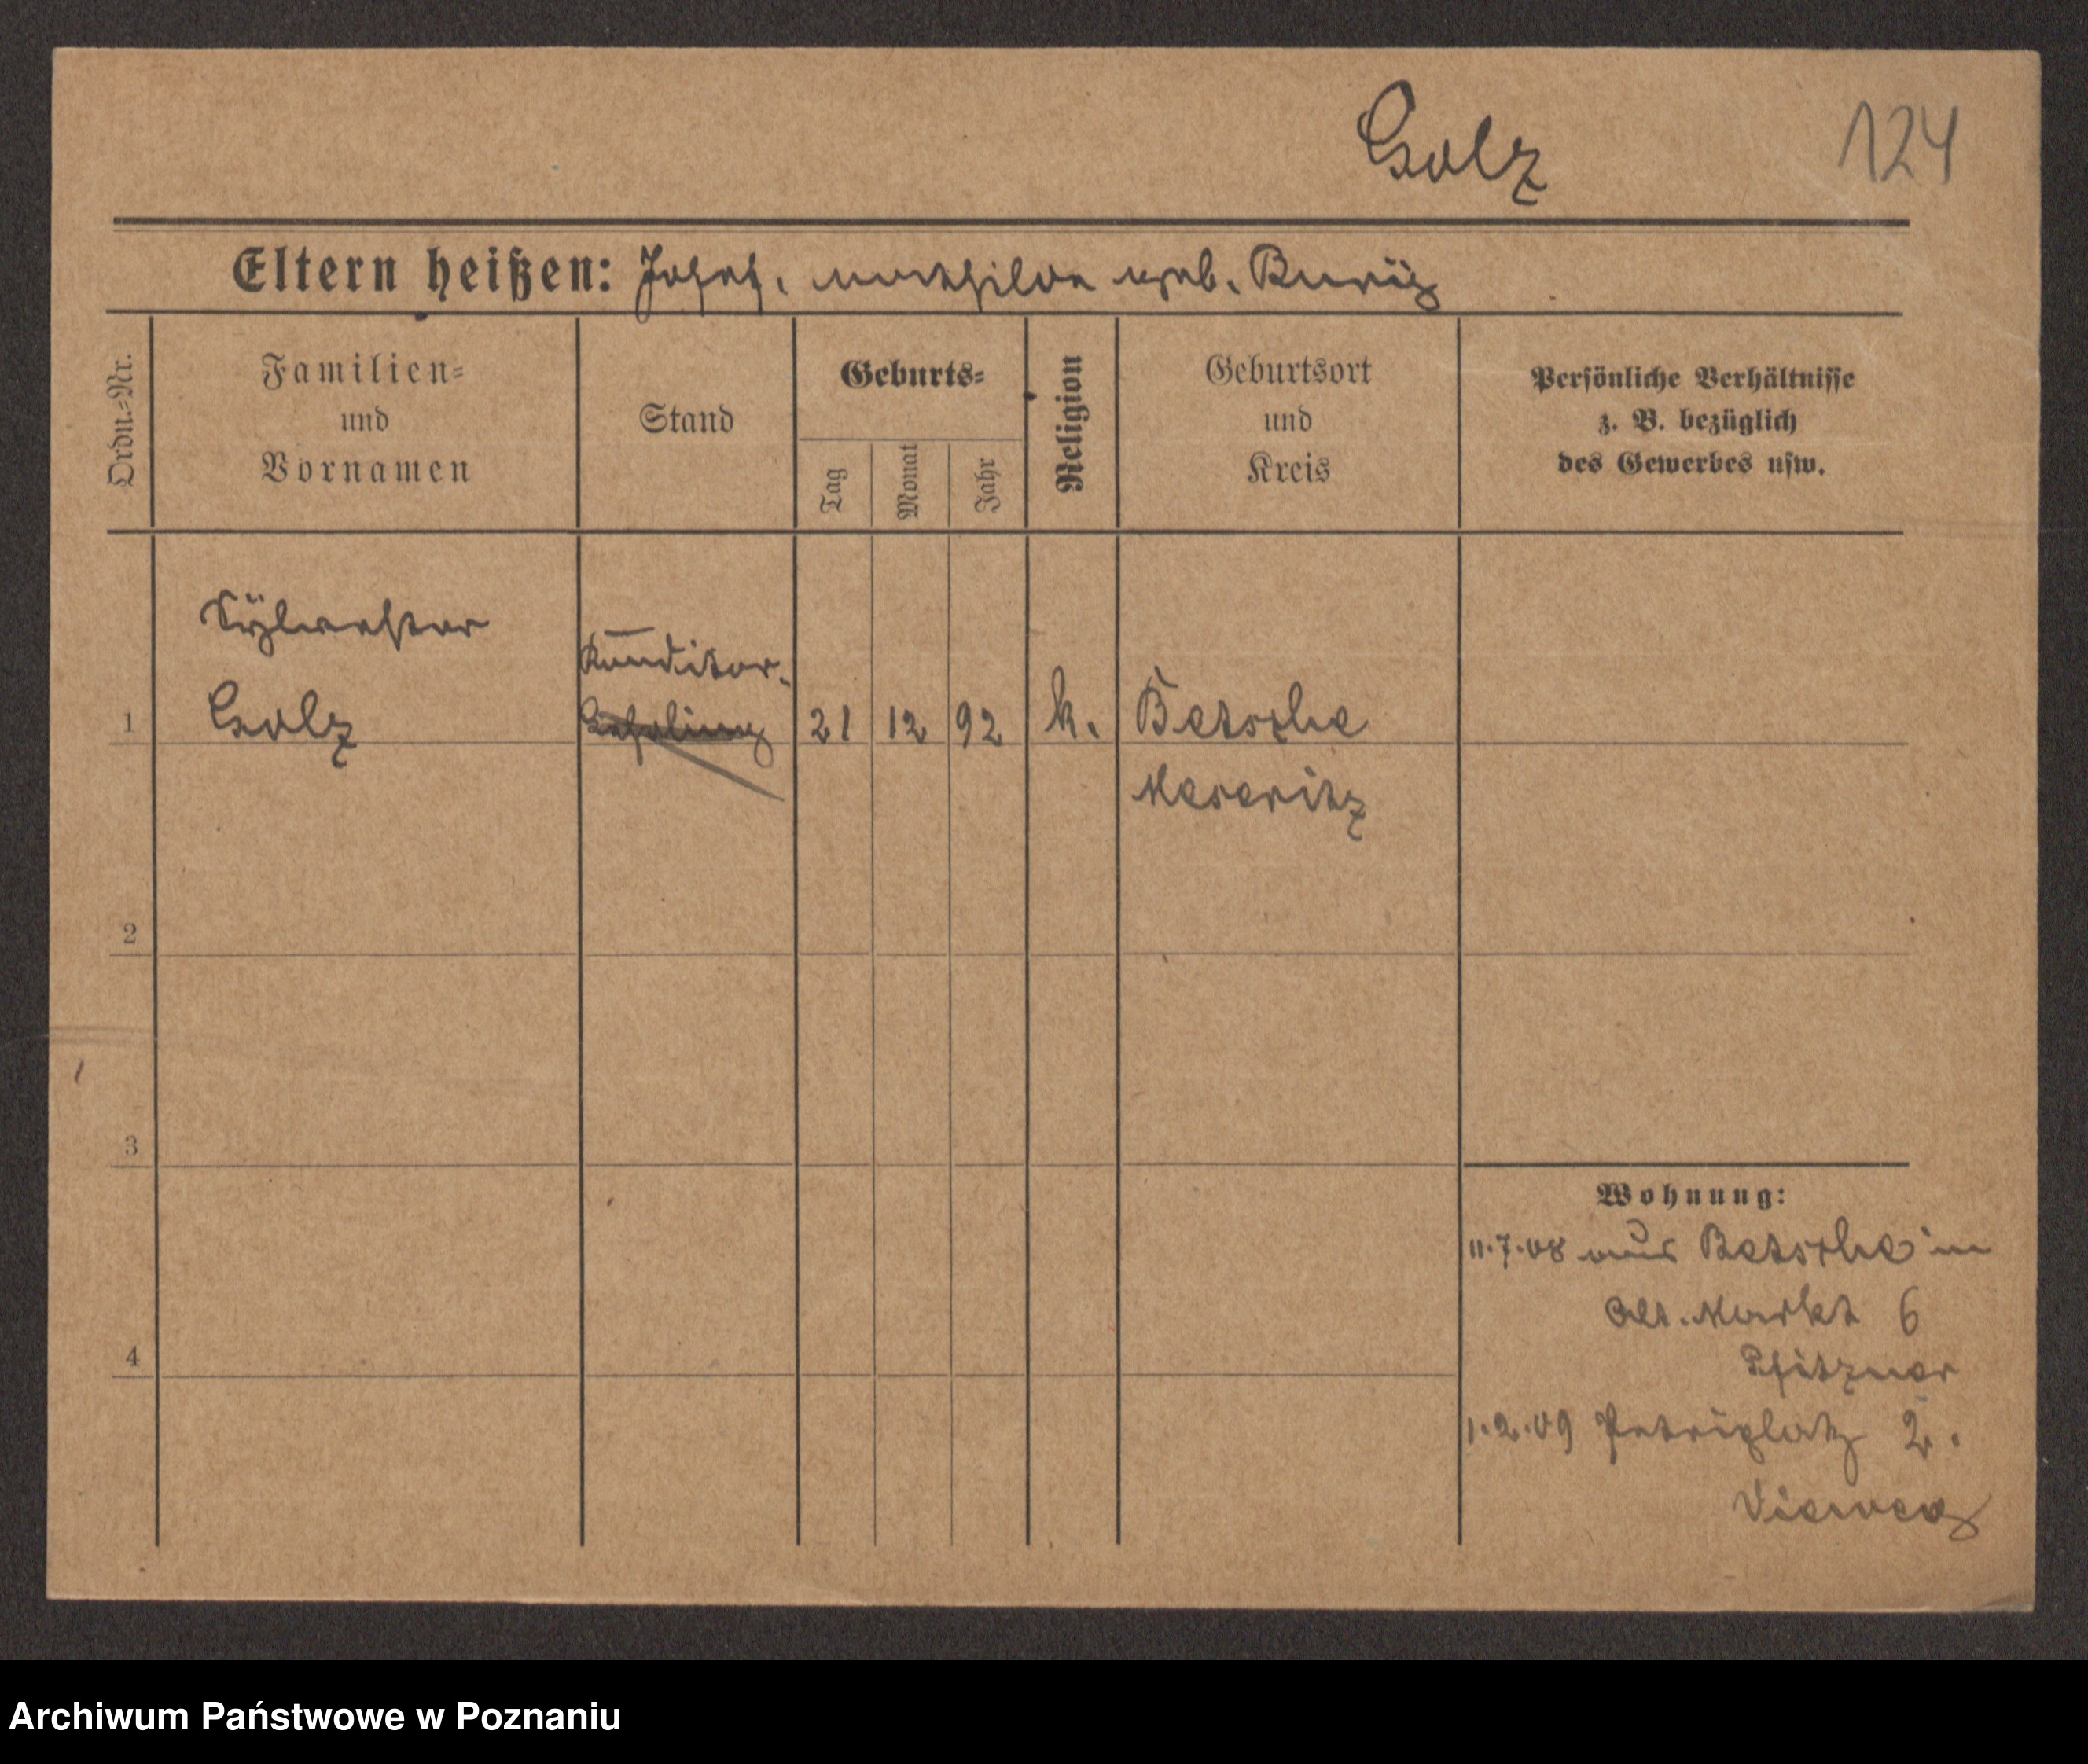 Golz 124
Eltern heißen: Josef, Mathilde geb. Bunig
Ordn.=Nr.
Familien=
und
Vornamen
Stand
Geburts=
Tag
Monat
Jahr
Religion
Geburtsort
und
Kreis
Persönliche Verhältnisse
z. B. bezüglich
des Gewerbes usw.
Sÿlvester
Konditor.
1 Golz 21 12 92 k. Betsche
Meseritz
2
3
Wohnung:
11.7.08 aus Betsche in
Alt. Markt 6
Pfitzner
4
1.2.09 Petriplatz 2.
Vieweg
Archiwum Państwowe w Poznaniu